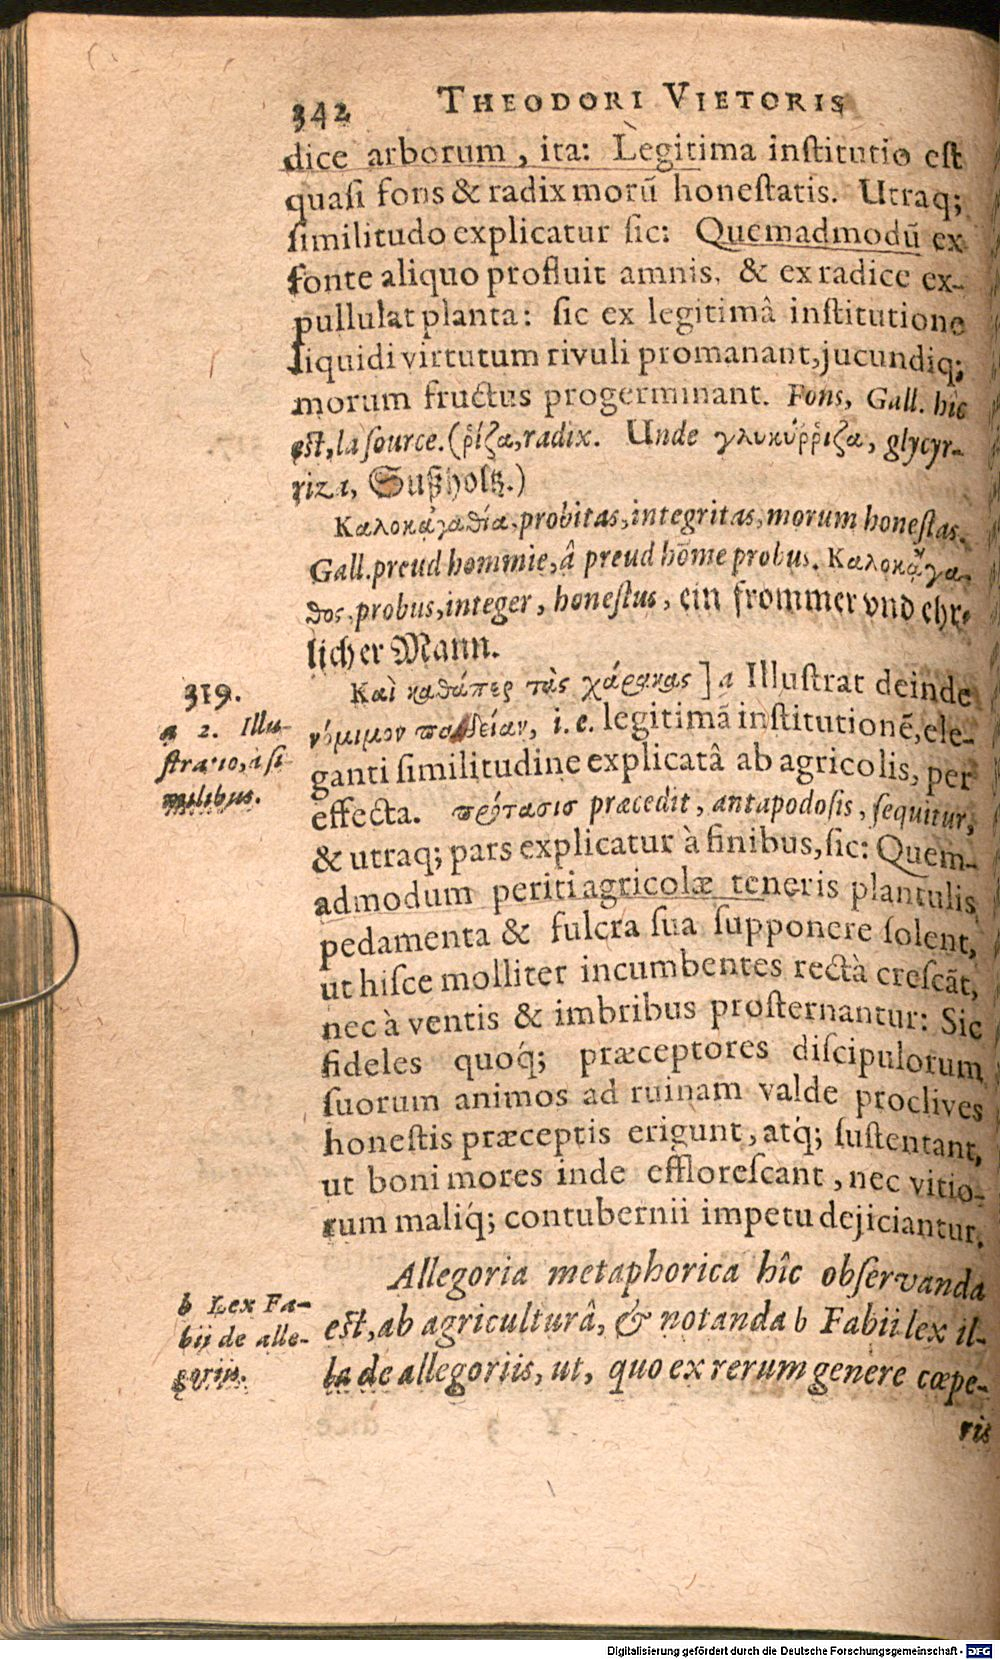 342 THEODORI VIETORIS
dice arborum, ita: Legitima institutio est
quasi fons & radix morū honestatis. Utraq;
similitudo explicatur sic: Quemadmodū ex
fonte aliquo profluit amnis, & ex radice ex-
pullulat planta: sic ex legitimâ institutione
liquidi virtutum rivuli promanant, jucundiq;
morum fructus progerminant. Fons, Gall. hîc
est, la source. (ῥίζα, radix. Unde γλυκύῤῥιζα, glycyr-
riza, Süßholtz.)
Καλοκἀγαθία, probitas, integritas, morum honestas.
Gall. preud hommie, â preud hōme probus. Καλοκᾄγα-
θος, probus, integer, honestus, ein frommer vnd ehr-
licher Mann.
319.
Καὶ καθάπερ τὰς χάρακας] a Illustrat deinde
a 2. Illu-
stratio, à si
milibus.
νόμιμον παιδείαν, i.e. legitimā institutionē, ele-
ganti similitudine explicatâ ab agricolis, per
effecta. πρότασις præcedit, antapodosis, sequitur,
& utraq; pars explicatur à finibus, sic: Quem-
admodum periti agricolæ teneris plantulis
pedamenta & fulcra sua supponere solent,
ut hisce molliter incumbentes rectà crescāt,
nec à ventis & imbribus prosternantur: Sic
fideles quoq́; præceptores discipulorum
suorum animos ad ruinam valde proclives
honestis præceptis erigunt, atq́; sustentant,
ut boni mores inde efflorescant, nec vitio-
rum maliq́; contubernii impetu dejiciantur.
Allegoria metaphorica hîc observanda
b Lex Fa-
bii de alle-
goriis.
est, ab agriculturâ, & notanda b Fabii lex il-
la de allegoriis, ut, quo ex rerum genere cœpe-
ris
Digitalisierung gefördert durch die Deutsche Forschungsgemeinschaft - DFG